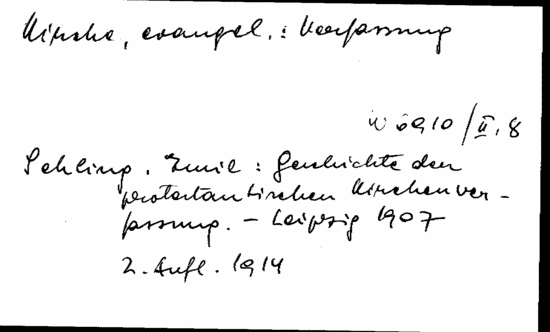 Kirche, evangel.: Verfassung
W 6910/II, 8
Sehling, Emil: Geschichte der
protestantischen Kirchenver-
fassung. - Leipzig 1907
2. Aufl. 1914